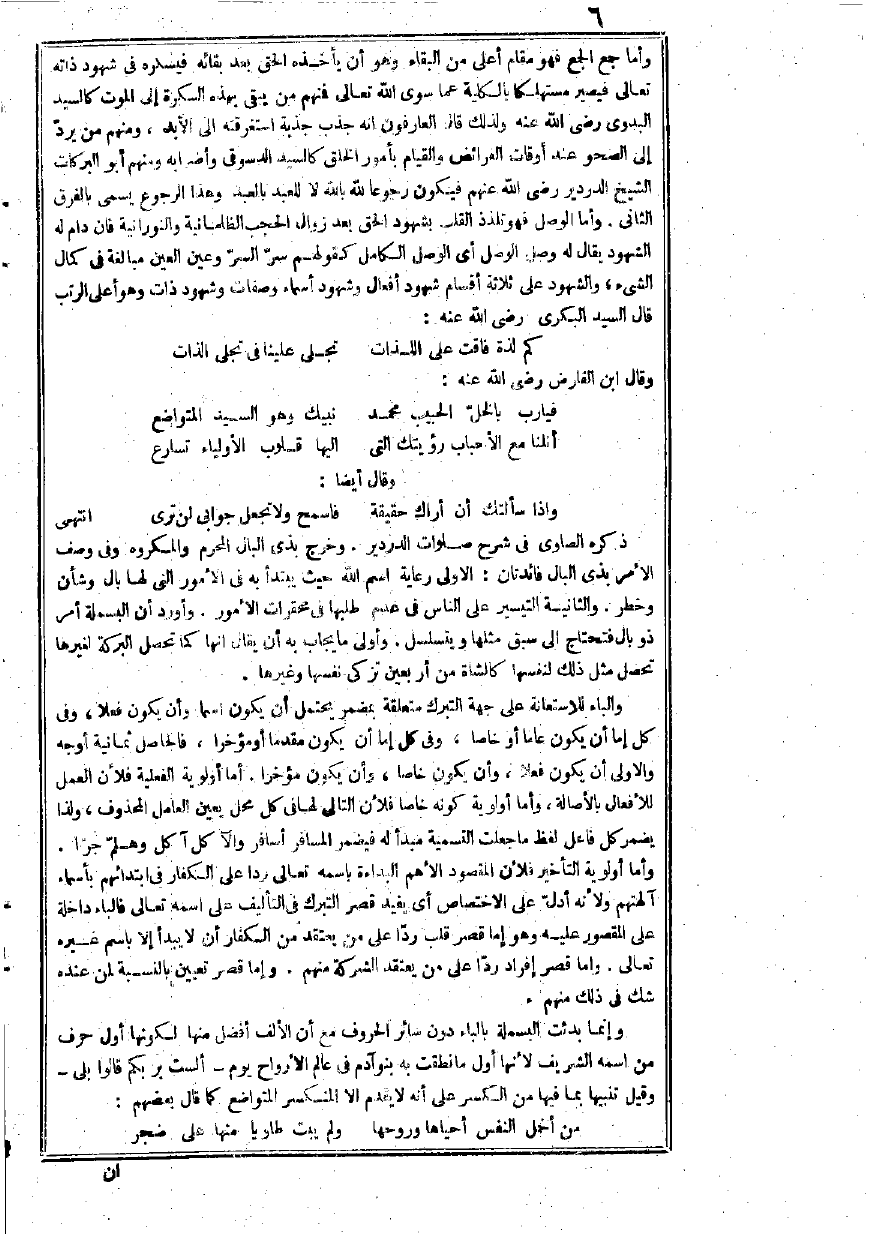 ٦
وأما جمع الجمع فهو مقام أعلى من البقاء وهو أن يأخذه الحق بعد بقائه فيسكره فى شهود ذاته
تعالى فيصير مستهلكا بالكلية عما سوى الله تعالى فمنهم من يبقى بهذه السكرة إلى الموت كالسيد
البدوى رضى الله عنه ولذلك قال العارفون انه جذب جذبة استغرقته الى الأبد ، ومنهم من يردّ
إلى الصحو عند أوقات الفرائض والقيام بأمور الخلق كالسيد الدسوقى وأضرابه ومنهم أبو البركات
الشيخ الدردير رضى الله عنهم فيكون رجوعا لله بالله لا للعبد بالعبد وهذا الرجوع يسمى بالفرق
الثانى . وأما الوصل فهو تلذذ القلب بشهود الحق بعد زوال الحجب الظلمانية والنورانية فان دام له
الشهود يقال له وصل الوصل أى الوصل الكامل كقولهم سرّ السرّ وعين العين مبالغة فى كمال
الشىء ؛ والشهود على ثلاثة أقسام شهود أفعال وشهود أسماء وصفات وشهود ذات وهو أعلى الرتب
قال السيد البكرى رضى الله عنه :
كم لذة فاقت على اللذات تجلى علينا فى تجلى الذات
وقال ابن الفارض رضى الله عنه :
فيارب بالخلّ الحبيب محمد نبيك وهو السيد المتواضع
أنلنا مع الأحباب رؤيتك التى اليها قلوب الأولياء تسارع
وقال أيضا :
واذا سألتك أن أراك حقيقة فاسمح ولا تجعل جوابى لن ترى انتهى
ذكره الصاوى فى شرح صلوات الدردير . وخرج بذى البال المحرم والمكروه وفى وصف
الأمر بذى البال فائدتان : الاولى رعاية اسم الله حيث يبتدأ به فى الأمور التى لها بال وشأن
وخطر . والثانية التيسير على الناس فى عدم طلبها فى محقرات الأمور . وأورد أن البسملة أمر
ذو بال فتحتاج الى سبق مثلها ويتسلسل . وأولى ما يجاب به أن يقال انها كما تحصل البركة لغيرها
تحصل مثل ذلك لنفسها كالشاة من أربعين تزكى نفسها وغيرها .
والباء للاستعانة على جهة التبرك متعلقة بمضمر يحتمل أن يكون اسما وأن يكون فعلا ، وفى
كل إما أن يكون عاما أو خاصا ، وفى كل إما أن يكون مقدما أو مؤخرا ، فالحاصل ثمانية أوجه
والاولى أن يكون فعلا ، وأن يكون خاصا ، وأن يكون مؤخرا . أما أولوية الفعلية فلأن العمل
للأفعال بالأصالة ، وأما أولوية كونه خاصا فلأن التالى لها فى كل محل يعين العامل المحذوف ، ولذا
يضمر كل فاعل لفظ ما جعلت التسمية مبدأ له فيضمر المسافر أسافر والآكل آكل وهلمّ جرّا .
وأما أولوية التأخير فلأن المقصود الأهم البداءة باسمه تعالى ردا على الكفار فى ابتدائهم بأسماء
آلهتهم ولأنه أدلّ على الاختصاص أى يفيد قصر التبرك فى التأليف على اسمه تعالى فالباء داخلة
على المقصور عليه وهو إما قصر قلب ردّا على من يعتقد من الكفار أن لا يبدأ إلا باسم غيره
تعالى . واما قصر إفراد ردّا على من يعتقد الشركة منهم . وإما قصر تعيين بالنسبة لمن عنده
شك فى ذلك منهم .
وإنما بدئت البسملة بالباء دون سائر الحروف مع أن الألف أفضل منها لكونها أول حرف
من اسمه الشريف لأنها أول ما نطقت به بنو آدم فى عالم الأرواح يوم - ألست بربكم قالوا بلى -
وقيل تنبيها بما فيها من الكسر على أنه لا يقدم الا المنكسر المتواضع كما قال بعضهم :
من أخمل النفس أحياها وروحها ولم يبت طاويا منها على ضجر
ان